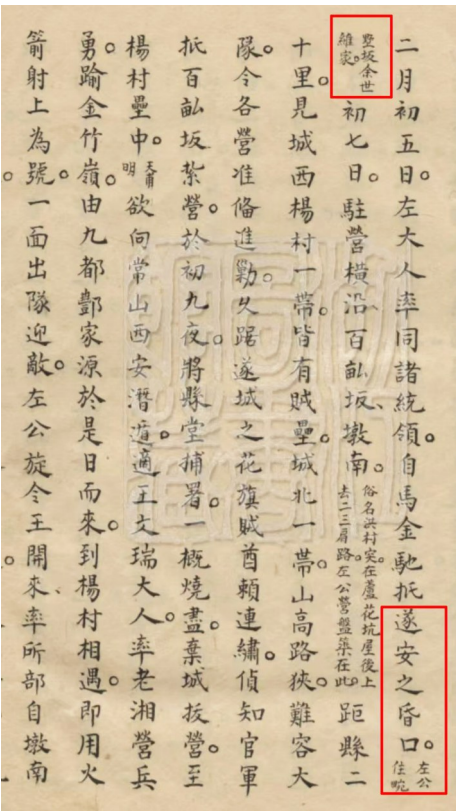 二月初五日。左大人率同諸統領。自馬金馳抵遂安之昏口。左公住畹
墅坂余世維家。初七日。駐營橫沿、百畝坂、墩南。俗名洪村突。在蘆花坑屋後上去二三肩路。左公營盤築在此。距縣二
十里。見城西楊村一帶。皆有賊壘。城北一帶。山高路狹。難容大
隊。令各營准備進勦。久踞遂城之花旗賊酋賴連繡。偵知官軍
抵百畝坂紮營。於初九夜。將縣堂捕署。一概燒盡。棄城拔營。至
楊村壘中。天甫明欲向常山西安潛遁。適王文瑞大人率老湘營兵
勇。踰金竹嶺。由九都鄷家源於是日而來。到楊村相遇。即用火
箭射上為號。一面出隊迎敵。左公旋令王開來、率所部自墩南